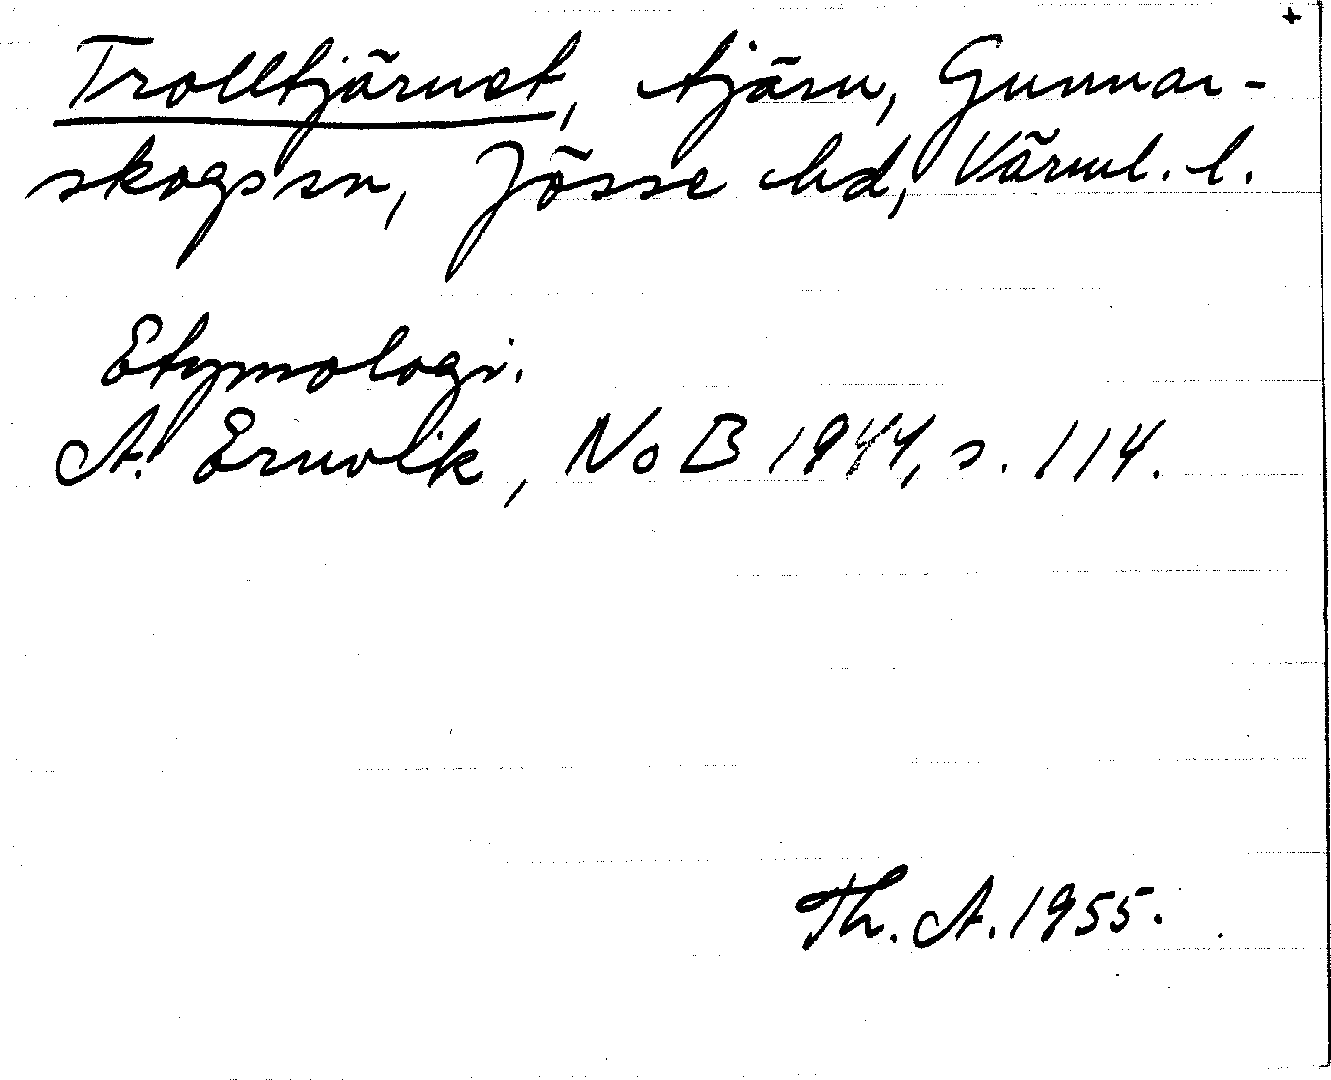 +
Trolltjärnet, tjärn, Gunnar-
skogs sn, Jösse hd, Värml. l.
Etymologi.
A. Ernvik, NoB 1944, s. 114.
Th. A. 1955.